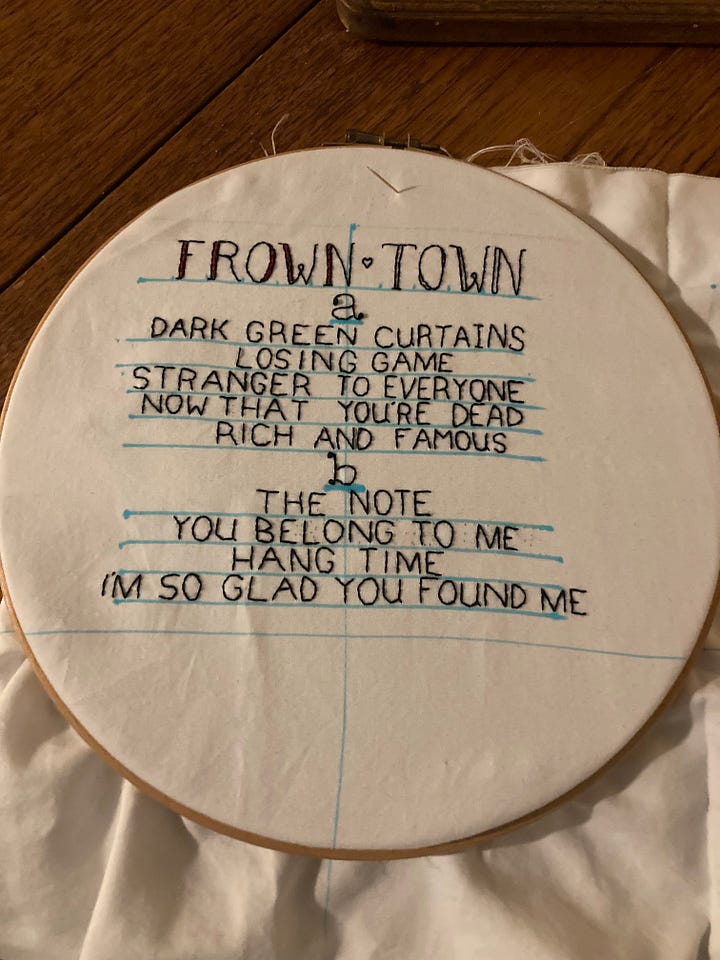 FROWN ♡ TOWN
a
DARK GREEN CURTAINS
LOSING GAME
STRANGER TO EVERYONE
NOW THAT YOU'RE DEAD
RICH AND FAMOUS
b
THE NOTE
YOU BELONG TO ME
HANG TIME
I'M SO GLAD YOU FOUND ME